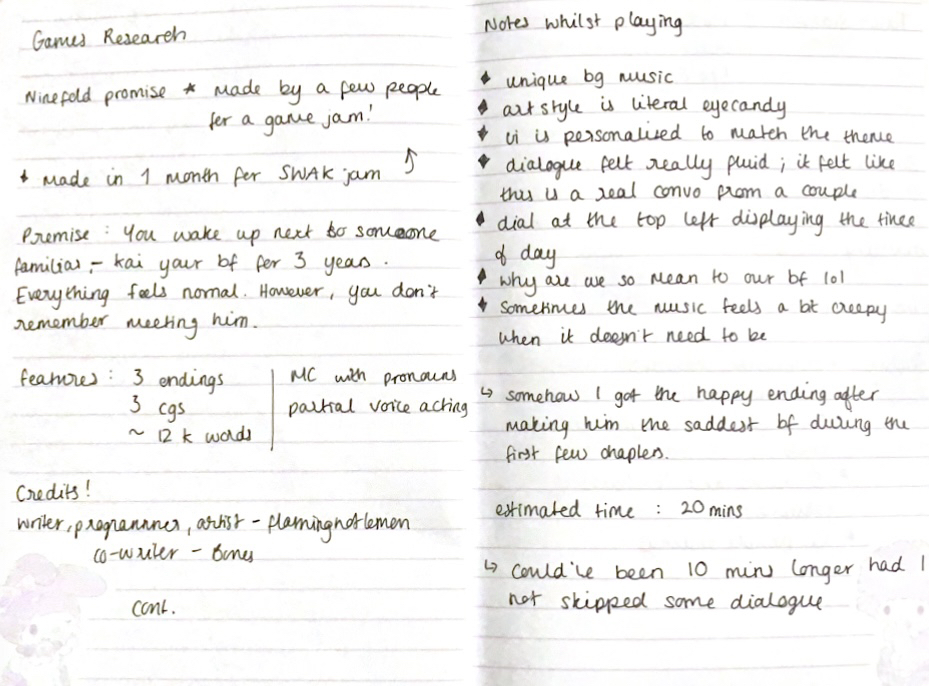 Games Research
Ninefold promise * made by a few people
for a game jam!
* made in 1 month for SWAK jam
Premise : You wake up next to someone
familiar - kai your bf for 3 years.
Everything feels normal. However, you don't
remember meeting him.
features : 3 endings
3 cgs
~ 12 k words
MC with pronouns
partial voice acting
Credits!
writer, programmer, artist - flaminghotlemon
co-writer - Bones
cont.
Notes whilst playing
♦ unique bg music
♦ art style is literal eyecandy
♦ ui is personalised to match the theme
♦ dialogue felt really fluid ; it felt like
this is a real convo from a couple
♦ dial at the top left displaying the time
of day
♦ why are we so mean to our bf lol
♦ sometimes the music feels a bit creepy
when it doesn't need to be
↳ somehow I got the happy ending after
making him the saddest bf during the
first few chapters.
estimated time : 20 mins
↳ could've been 10 mins longer had I
not skipped some dialogue